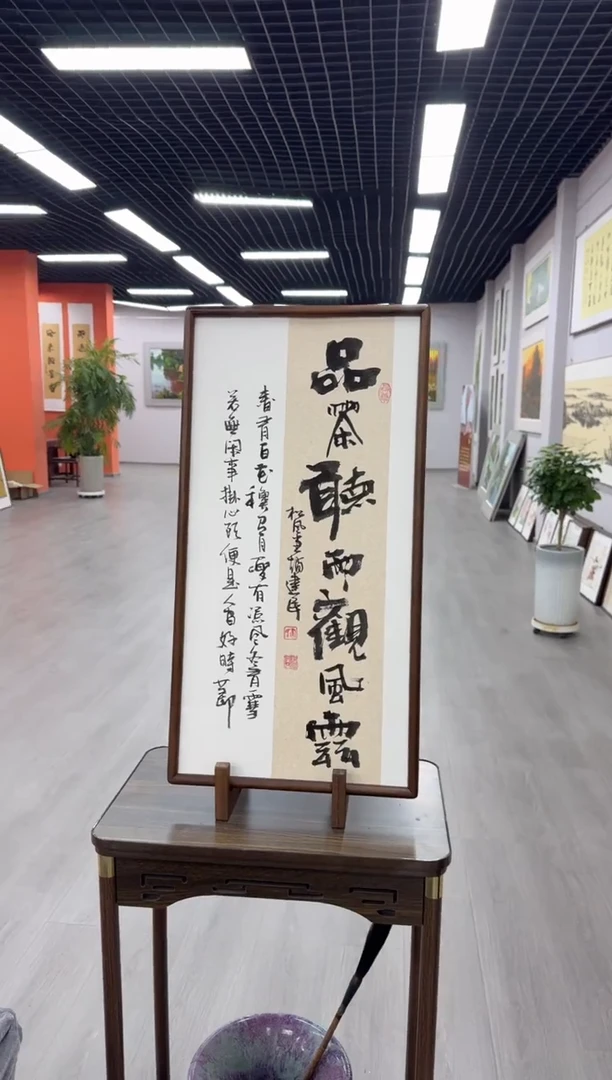 品茶聽雨觀風雲
松风堂建民
春有百花穐有月夏有凉风冬有雪
若無闲事掛心頭便是人間好時節